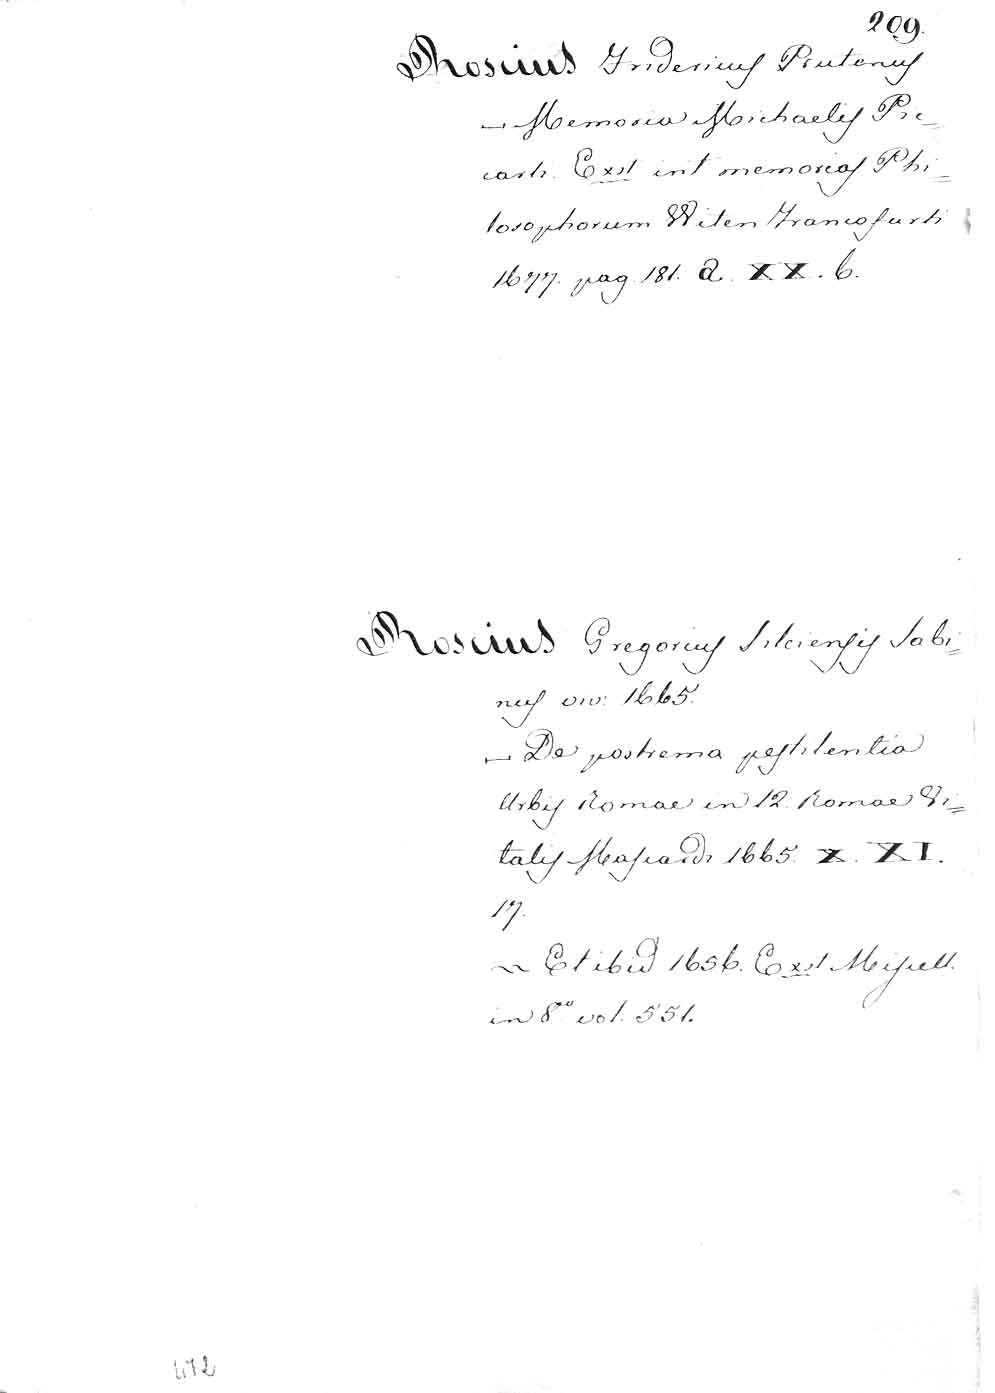 209.
Roscius Fridericus Prutenus
— Memoria Michaelis Pic=
carti. Exst int memorias Phi=
losophorum Witen Francofurti
1677. pag. 181. a. XX. 6.
Roscius Gregorius Sabi=
nus viv: 1665.
— De postrema pestilentia
Urbis Romae in 12. Romae Vi=
talis Mascardi 1665. X. XI.
17.
~ Et ibid 1656. Exst Miscell.
in 8.º vol. 551.
472